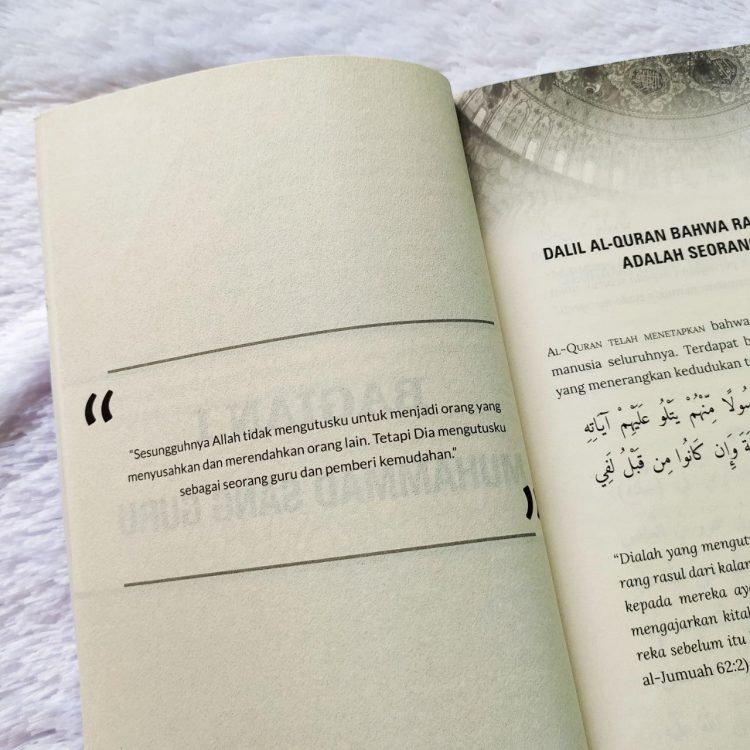 “Sesungguhnya Allah tidak mengutusku untuk menjadi orang yang
menyusahkan dan merendahkan orang lain. Tetapi Dia mengutusku
sebagai seorang guru dan pemberi kemudahan.”
BAGIAN I
MUHAMMAD SANG GURU
DALIL AL-QURAN BAHWA RA
ADALAH SEORANG
AL-QURAN TELAH MENETAPKAN bahwa
manusia seluruhnya. Terdapat b
yang menerangkan kedudukan t
سُولًا مِّنْهُمْ يَتْلُو عَلَيْهِمْ آيَاتِهِ
وَإِن كَانُوا مِن قَبْلُ لَفِي
“Dialah yang mengut
rang rasul dari kalan
kepada mereka aya
mengajarkan kitab
reka sebelum itu
al-Jumuah 62:2)